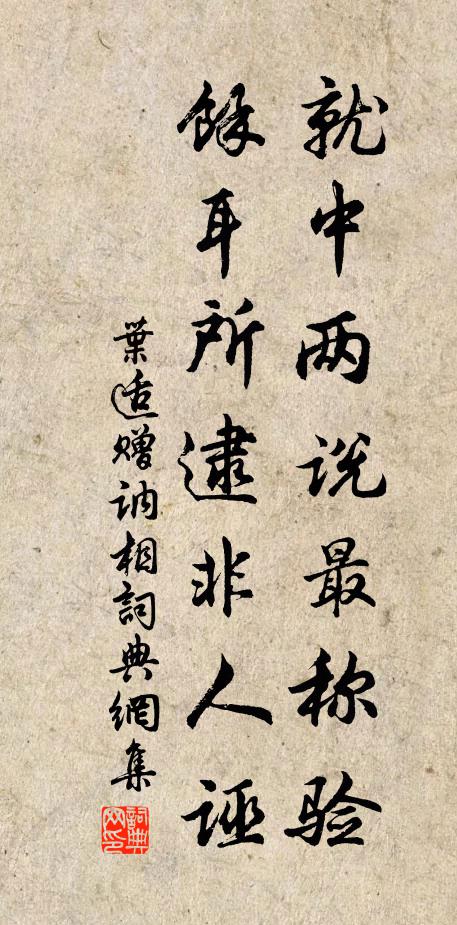 就中两说最称验
馀耳所逮非人诬
葉适赠讷相詞典網集
詞典网印